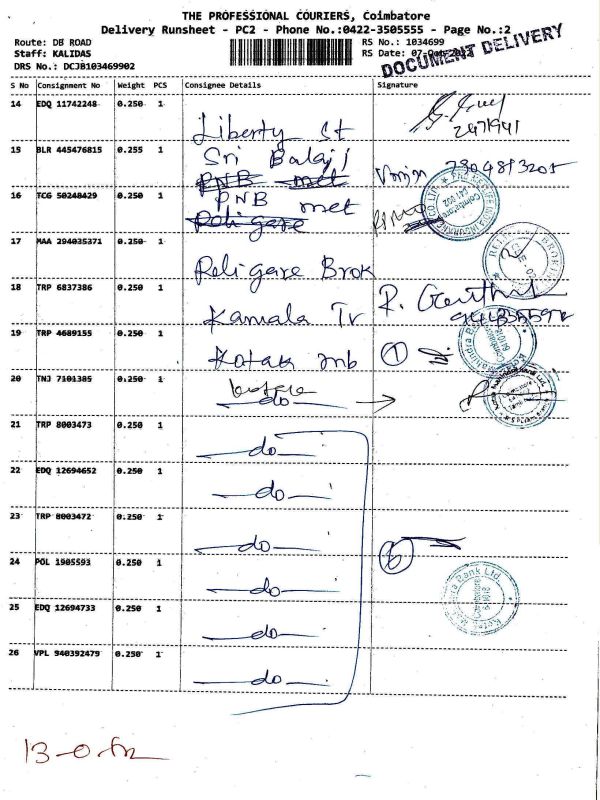 THE PROFESSIONAL COURIERS, Coimbatore
Delivery Runsheet - PC2 - Phone No.:0422-3505555 - Page No.:2
Route: DB ROAD
RS No.: 1034699
Staff: KALIDAS
RS Date: 07-
DRS No.: DCJB103469902
DOCUMENT DELIVERY
S No Consignment No Weight PCS Consignee Details Signature
14 EDQ 11742248 0.250 1
Liberty St
2471941
15 BLR 445476815 0.255 1
Sri Balaji
PNB met
7304813205
16 TCG 50248429 0.250 1
PNB met
Religare
17 MAA 294035371 0.250 1
Religare Brok
18 TRP 6837386 0.250 1
Kamala Tr
R.
19 TRP 4689155 0.250 1
Kotak mb
1
20 TNJ 7101385 0.250 1
do
21 TRP 8003473 0.250 1
do
22 EDQ 12694652 0.250 1
do
23 TRP 8003472 0.250 1
do
6
24 POL 1905593 0.250 1
do
Bank Ltd.
25 EDQ 12694733 0.250 1
do
26 VPL 940392479 0.250 1
do
13-0-